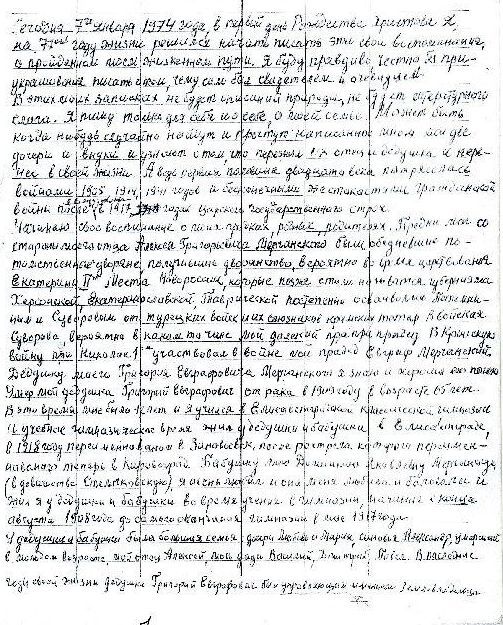 Сегодня 7го января 1974 года, в первый день Рождества Христова я,
на 71ом году жизни решился начать писать эти свои воспоминания,
о пройденном мося жизненном пути. Я буду правдиво, честно без при-
украшивания писать о том, чему сам был свидетелем и очевидцем.
В этих моих записках не будет описаний природы, не будет литературного
слога. Я пишу только для себя и о себе, о моей семье. Может быть
когда нибудь случайно найдут и прочтут написанное мною мои две
дочери и внуки и узнают о том что пережил их отец и дедушка и
в своей жизни. А ведь первая половина двадцатого века
войнами 1905, 1914, 1941 годов и жестокостями гражданской
войны после в 1917 годах царского государственного строя.
Начинаю свое воспоминание о моих предках, родных, родителях. Предки мои со
стороны моего отца Алексея Григорьевича были обедневшие по-
томственные дворяне, получившие дворянство, вероятно во время царствования
Екатерины IIой. Места Новороссии, которые позже стали называться губерниями
Херсонской, Екатеринославской, Таврической постепенно
и Суворовым от турецких войск и их союзников крымских татар. В войсках
Суворова, вероятно в каком то чине мой далекий пра пра прадед. В Крымскую
войну при Николае 1 участвовал в войне мой прадед Евграф
Дедушку моего Григория Евграфовича я знаю и хорошо его помню
Умер мой дедушка Григорий Евграфович от рака в 1909 году в возрасте 65 лет.
В это время мне было лет и я учился в Елисаветградской классической гимназии
и учебное гимназическое время жил у дедушки и бабушки в Елисаветграде,
в 1918 году переименованом в Зиновьевск, после расстрела которого переимен-
нованого теперь в Кировоград. Бабушку мою Яковлевну
(в девичестве), я очень любил и она меня любила и баловала и
жил я у дедушки и бабушки во время учения в гимназии, начиная с конца
августа 1908 года до самого окончания гимназии в мае 1917 года.
У дедушки и бабушки была большая семья: дочери Любовь и Мария, сыновья Александр, умерший
в молодом возрасте, мой отец Алексей, мои дяди Василий, Дмитрий, Павел. В последние
годы своей жизни дедушка Григорий Евграфович был управляющим имением Землевладельца
1